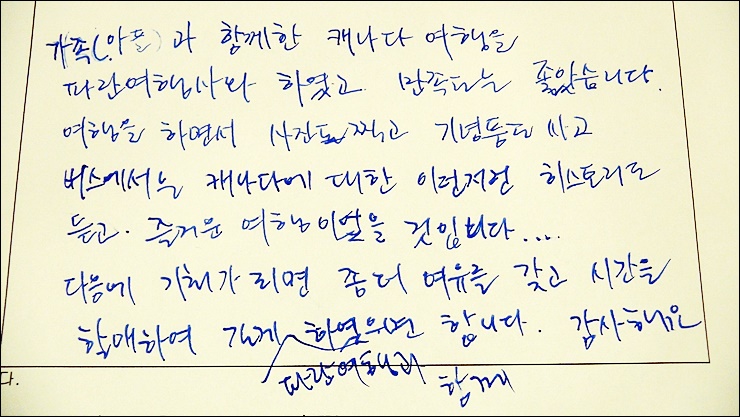 가족(아들)과 함께한 캐나다 여행을
파란여행사와 하였고 만족도는 좋았습니다.
여행을 하면서 사진도 찍고 기념품도 사고
버스에서는 캐나다에 대한 이런저런 히스토리도
듣고. 즐거운 여행이었을 것입니다....
다음에 기회가 되면 좀더 여유를 갖고 시간을
할애하여 길게 하였으면 합니다. 감사해요
파란여행과 함께
다.